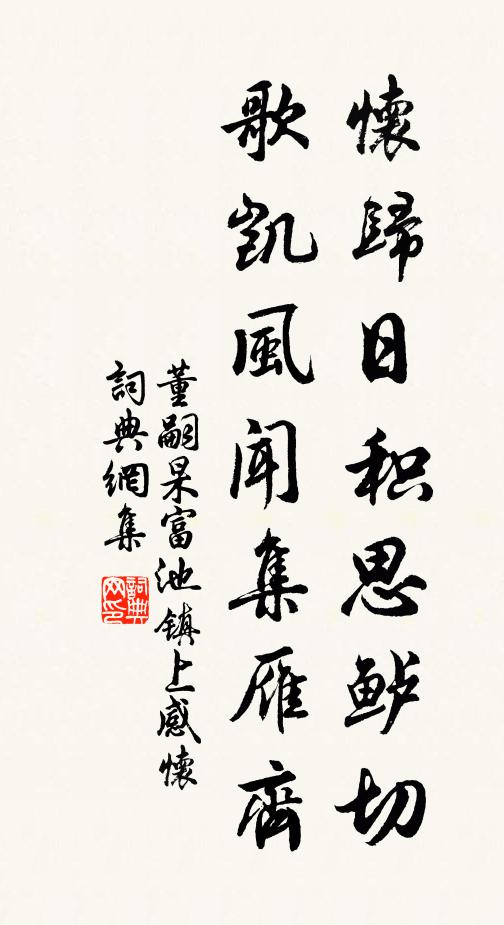 懷歸日积思鲈切
歌凱風闻集雁齊
董嗣杲富池鎮上感懷
詞典網集
詞典网印